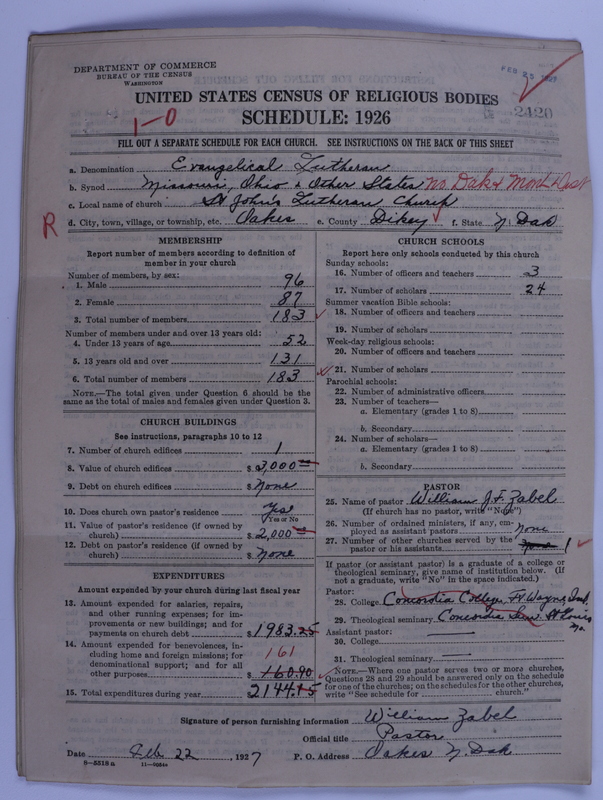 DEPARTMENT OF COMMERCE
BUREAU OF THE CENSUS
WASHINGTON
FEB 25 1927
UNITED STATES CENSUS OF RELIGIOUS BODIES
SCHEDULE: 1926
2420
1-0
FILL OUT A SEPARATE SCHEDULE FOR EACH CHURCH. SEE INSTRUCTIONS ON THE BACK OF THIS SHEET
a. Denomination Evangelical Lutheran
b. Synod Missouri, Ohio & Other States No. Dak & Mont Dist
c. Local name of church St John's Lutheran Church
R d. City, town, village, or township, etc. Oakes e. County Dikey f. State N. Dak
MEMBERSHIP
Report number of members according to definition of
member in your church
Number of members, by sex:
1. Male 96
2. Female 87
3. Total number of members 183
Number of members under and over 13 years old:
4. Under 13 years of age 52
5. 13 years old and over 131
6. Total number of members 183
NOTE.—The total given under Question 6 should be the
same as the total of males and females given under Question 3.
CHURCH BUILDINGS
See instructions, paragraphs 10 to 12
7. Number of church edifices 1
8. Value of church edifices $ 3,000
9. Debt on church edifices $ None
10. Does church own pastor's residence? Yes
Yes or No
11. Value of pastor's residence (if owned by
church) $ 2,000
12. Debt on pastor's residence (if owned by
church) $ None
EXPENDITURES
Amount expended by your church during last fiscal year
13. Amount expended for salaries, repairs,
and other running expenses; for im-
provements or new buildings; and for
payments on church debt $ 1983.25
14. Amount expended for benevolences, in-
cluding home and foreign missions; for
denominational support; and for all
other purposes 161
$ 160.90
15. Total expenditures during year $ 2144.15
CHURCH SCHOOLS
Report here only schools conducted by this church
Sunday schools:
16. Number of officers and teachers 3
17. Number of scholars 24
Summer vacation Bible schools:
18. Number of officers and teachers
19. Number of scholars
Week-day religious schools:
20. Number of officers and teachers
21. Number of scholars
Parochial schools:
22. Number of administrative officers
23. Number of teachers—
a. Elementary (grades 1 to 8)
b. Secondary
24. Number of scholars—
a. Elementary (grades 1 to 8)
b. Secondary
PASTOR
25. Name of pastor William J. F. Zabel
(If church has no pastor, write "None")
26. Number of ordained ministers, if any, em-
ployed as assistant pastors None
27. Number of other churches served by the
pastor or his assistants None 1
If pastor (or assistant pastor) is a graduate of a college or
theological seminary, give name of institution below. (If
not a graduate, write "No" in the space indicated.)
Pastor:
28. College Concordia College, Ft Wayne, Ind.
29. Theological seminary Concordia Sem. St Louis Mo.
Assistant pastor:
30. College
31. Theological seminary
NOTE.—Where one pastor serves two or more churches,
Questions 28 and 29 should be answered only on the schedule
for one of the churches; on the schedules for the other churches,
write "See schedule for church."
Signature of person furnishing information William Zabel
Official title Pastor
Date Feb. 22, 1927 P. O. Address Oakes N Dak
8-5518 a